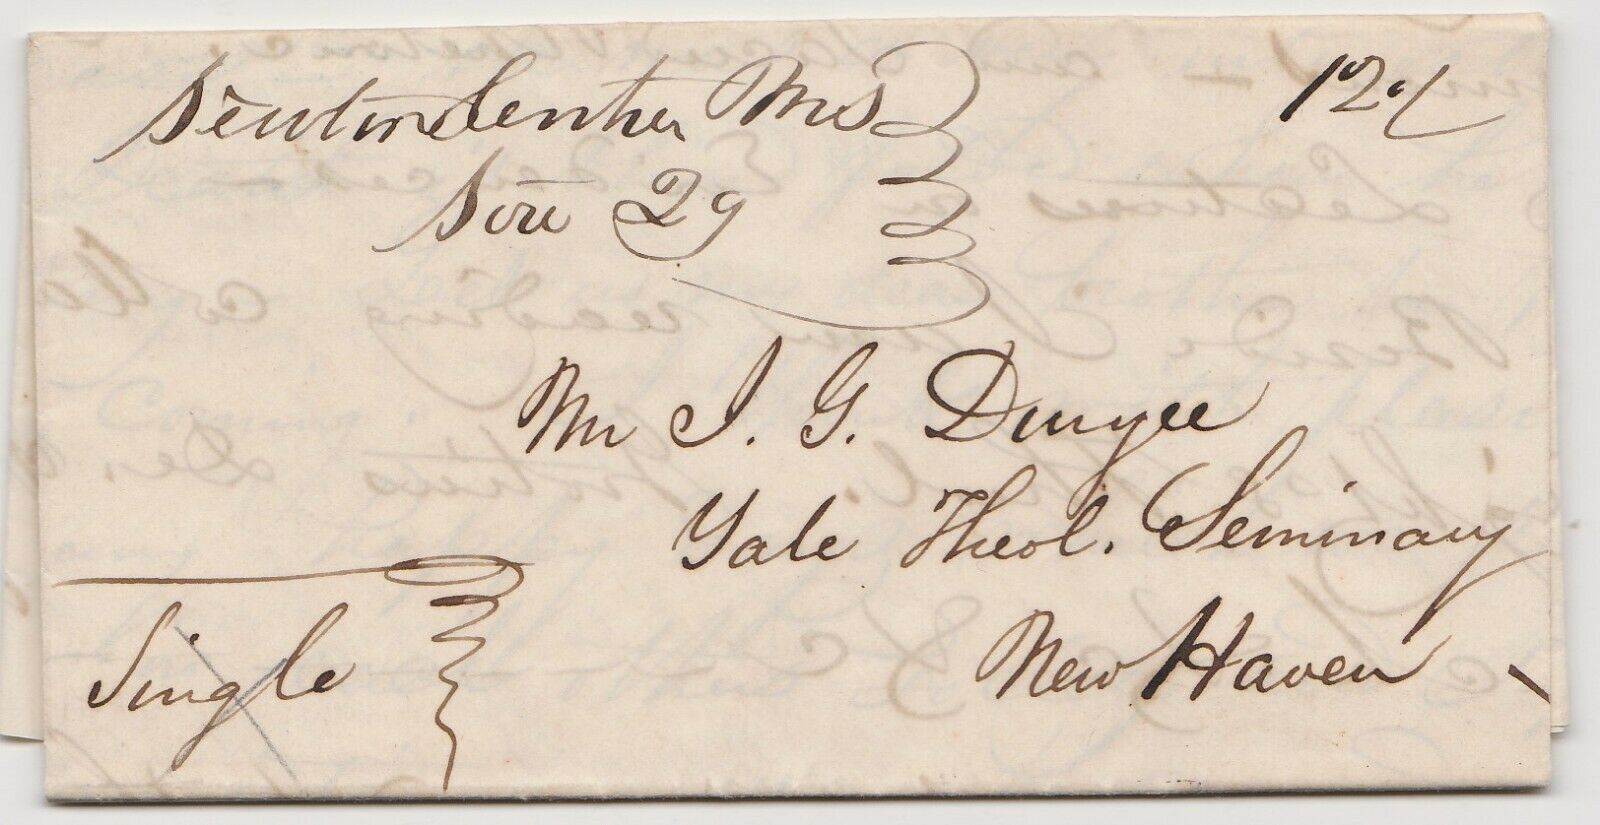 Newton Centre Ms
Nov 29
12 1/2
Mr J. G. Duryee
Yale Theol. Seminary
New Haven
Single